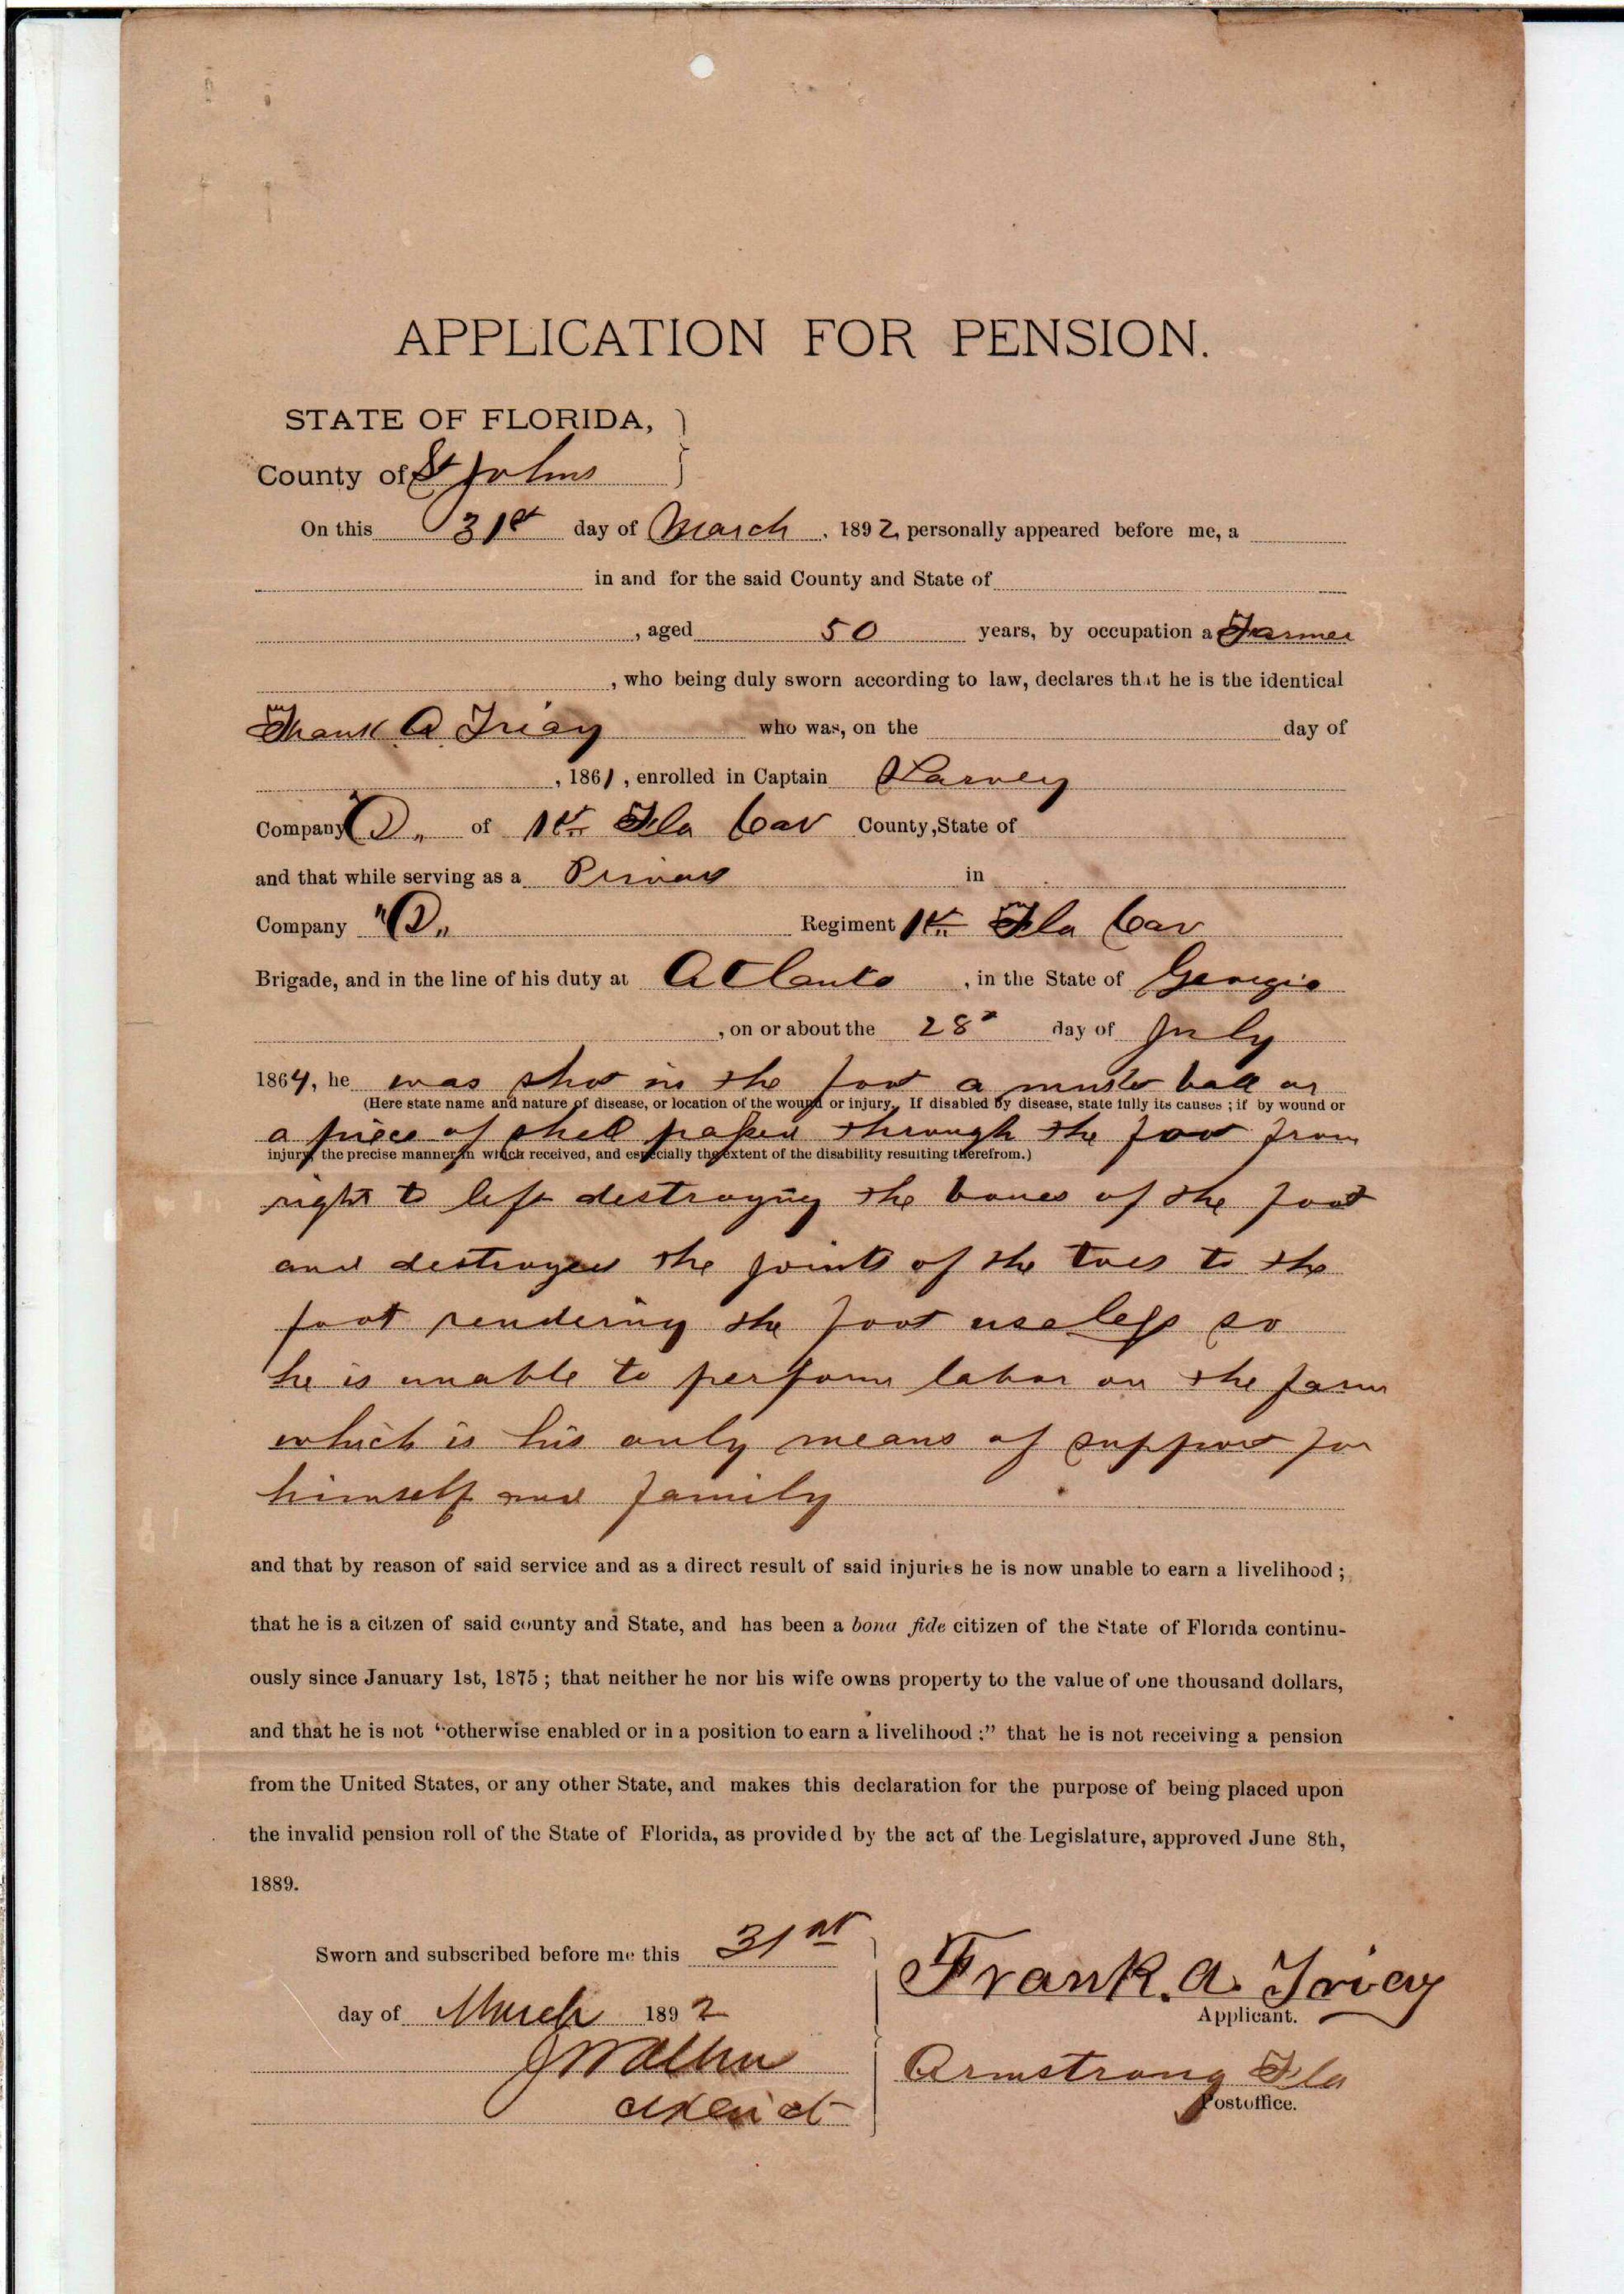 APPLICATION FOR PENSION.
STATE OF FLORIDA,
County of St Johns
On this 31st day of March, 1892, personally appeared before me, a
in and for the said County and State of
, aged 50 years, by occupation a Farmer
, who being duly sworn according to law, declares that he is the identical
Frank A Triay who was, on the day of
, 1861, enrolled in Captain Harvey
Company "D" of 1st Fla Cav County, State of
and that while serving as a Privat in
Company "D" Regiment 1st Fla Cav
Brigade, and in the line of his duty at Atlanta, in the State of Georgia
, on or about the 28" day of July
1864, he was shot in the foot a musket ball or
(Here state name and nature of disease, or location of the wound or injury. If disabled by disease, state fully its causes ; if by wound or
a piece of shell passed through the foot from
injury, the precise manner in which received, and especially the extent of the disability resulting therefrom.)
right to left destroying the bones of the foot
and destroyed the joints of the toes to the
foot rendering the foot useless so
he is unable to perform labor on the farm
which is his only means of support for
himself and family
and that by reason of said service and as a direct result of said injuries he is now unable to earn a livelihood ;
that he is a citzen of said county and State, and has been a bona fide citizen of the State of Florida continu-
ously since January 1st, 1875 ; that neither he nor his wife owns property to the value of one thousand dollars,
and that he is not "otherwise enabled or in a position to earn a livelihood :" that he is not receiving a pension
from the United States, or any other State, and makes this declaration for the purpose of being placed upon
the invalid pension roll of the State of Florida, as provided by the act of the Legislature, approved June 8th,
1889.
Sworn and subscribed before me this 31st
day of March 1892
Frank. A. Triay
Applicant.
Armstrong Fla
Postoffice.